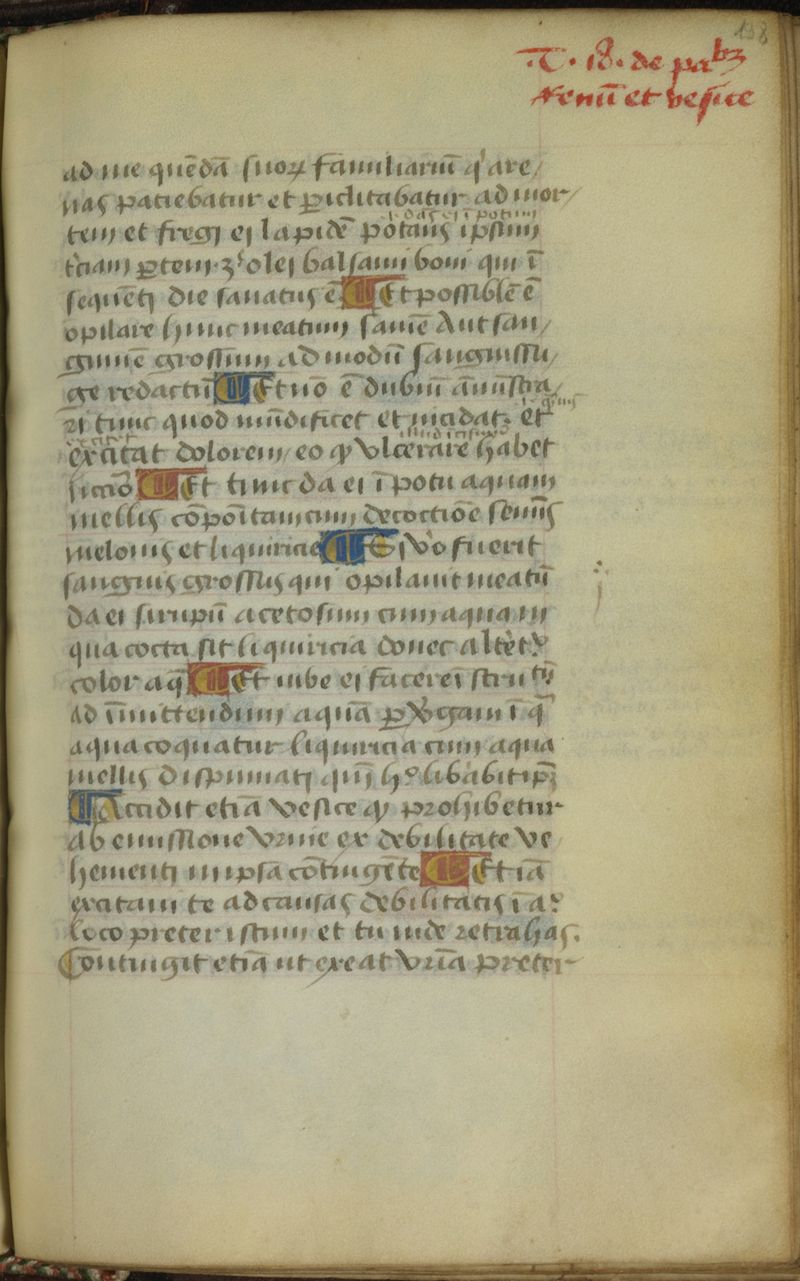 138
.T. 18. de pabꝫ
renū et vesice
ad me quēdā suoꝝ familiariū qͥ are/
nas patiebatur et ꝑiclitabatur ad mor/
tem et fregi ei lapidē potans ipsum
tciam ꝑtem ʒ olei balsami boni qui ī
sequēti die sanatus ē Et possiblē ē
opilare hunc meatum saniē Aut san/
guinē grossum ad modū sanguissu/
ge redactū Et nō ē dubiū
ri tunc quod mūdificet et incidat et
excitat dolorem eo ꝙ vlcerare habet
Et tunc da ei ī potu aquam
mellis cōpoītam cum decoctiōe semīs
melonis et liquiricie Si vͦo fuerit
sanguis grossus qui opilauit meatū
da ei sirupū acetosum cum aqua in
qua cocta sit liquiricia donec
color aq̄ Et iube ei facere īstru
ad īmittendum aquā ꝑ v̓gam ī q̄
aqua coquatur liquiricia cum aqua
mellis dispumati
Accidit etiā vesice ꝙ prohibetur
ab emissione vrine ex debilitate ve
hementi in ipsa cōtingēte Et iā
excitaui te ad causas debilitatis ī a
loco preter istum et tu inde retrahas.
Contingit etiā ut exeat vrīa preter